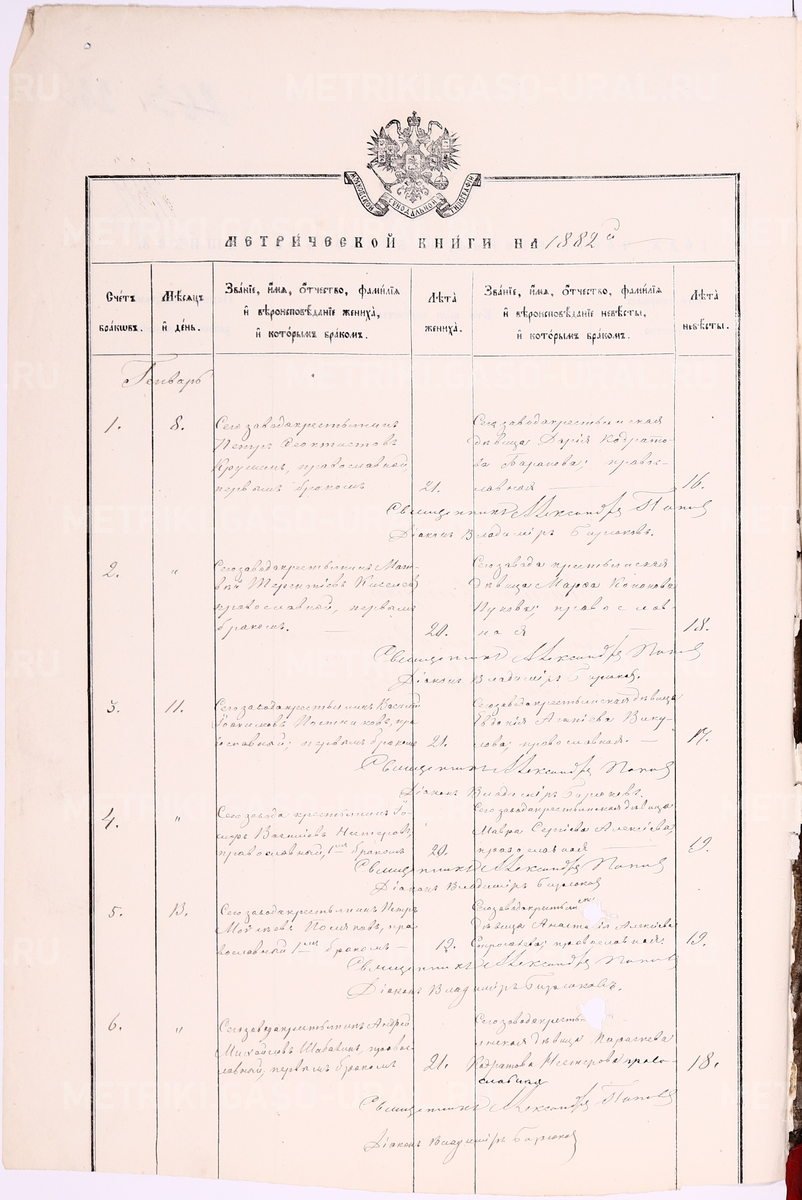 METRIKI.GASO-URAL.RU
МОСКОВСКОЙ СѴНОДАЛЬНОЙ ТИПОГРАФІИ
МЕТРИЧЕСКОЙ КНИГИ НА 1882 й
Счетъ браковъ.
Мѣсяцъ и день.
Званіе, имя, отчество, фамилія и вѣроисповѣданіе жениха, и которымъ бракомъ.
Лѣта жениха.
Званіе, имя, отчество, фамилія и вѣроисповѣданіе невѣсты, и которымъ бракомъ.
Лѣта невѣсты.
Генварь
1. 8.
Сего завода крестьянинъ
Петръ Феоктистовъ
православной
первымъ бракомъ 21.
Сего завода крестьянская
дѣвица Дарія Кодрато-
ва Баранова; правос-
лавная 16.
Священникъ Александръ Поповъ
Діаконъ Владиміръ Бирюковъ.
2. "
Сего завода крестьянинъ Мат-
вей Терентьевъ Киселевъ
православной, первымъ
бракомъ. 20.
Сего завода крестьянская
дѣвица Марѳа Кононова
православ
ная 18.
Священникъ Александръ Поповъ
Діаконъ Владиміръ Бирюковъ.
3. 11.
Сего завода крестьянинъ
Іоакимовъ пра
вославный; первымъ бракомъ 21.
Сего завода крестьянская дѣвица
Евдокія Вику-
лова; православная. 17.
Священникъ Александръ Поповъ
Діаконъ Владиміръ Бирюковъ.
4. "
Сего завода крестьянинъ
Василіевъ Нестеровъ,
православный, 1мъ бракомъ 20.
Сего завода крестьянская дѣвица
Мавра Сергіева Алексіева
православная 19.
Священникъ Александръ Поповъ
Діаконъ Владиміръ Бирюковъ
5. 13.
Сего завода крестьянинъ Петръ
Поляковъ, пра
вославный 1мъ бракомъ 19.
Сего завода крестьянск
дѣвица Анастасія Алексіева
православная 19.
Священникъ Александръ Поповъ
Діаконъ Владиміръ Бирюковъ.
6. "
Сего завода крестьянинъ Андрей
Михайловъ Шабалинъ, правос-
лавный, первымъ бракомъ 21.
Сего завода крестья
нская дѣвица Параскева
Кодратова Нестерова право-
славная 18.
Священникъ Александръ Поповъ
Діаконъ Владиміръ Бирюковъ